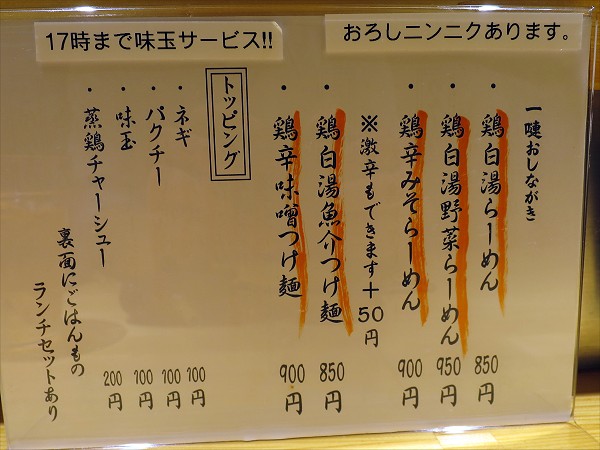 17時まで味玉サービス!!
おろしニンニクあります。
一嗹おしながき
・鶏白湯らーめん 850円
・鶏白湯野菜らーめん 950円
・鶏辛みそらーめん 900円
※激辛もできます+50円
・鶏白湯魚介つけ麺 850円
・鶏辛味噌つけ麺 900円
トッピング
・ネギ 100円
・パクチー 100円
・味玉 100円
・蒸鶏チャーシュー 200円
裏面にごはんもの
ランチセットあり